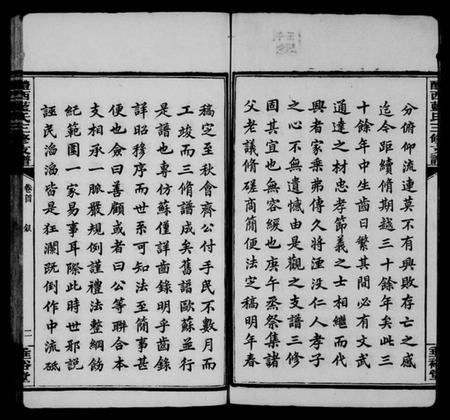 分俯仰流連莫不有興敗存亡之感
迄今距續脩期越三十餘年矣此三
十餘年中生齒日繁其間必有文武
通達之材忠孝節義之士相繼而代
興者家乗弗傳久將湮沒仁人孝子
之心豈不無遺憾由是觀之支譜三修
固其宜也其無容緩也庚午烝祭集諸
父老議脩磋商簡便法定稿明年春
醴西藍氏三修支譜
垂裕堂
醴西藍氏三修支譜
卷首
叙
二
垂裕堂
稿定至秋會齊公付手民不數月而
工竣而三脩譜成矣舊譜歐蘇並行
是譜也專仿蘇僅詳齒錄明乎齒錄
詳昭穆序而世系可知法至簡事甚
便也僉曰善顧或者曰公等聯合本
支相承一脈嚴規例謹禮法整綱飭
紀範圍一家易事耳際此時世邪説
誣民滔滔皆是狂瀾既倒作中流砥